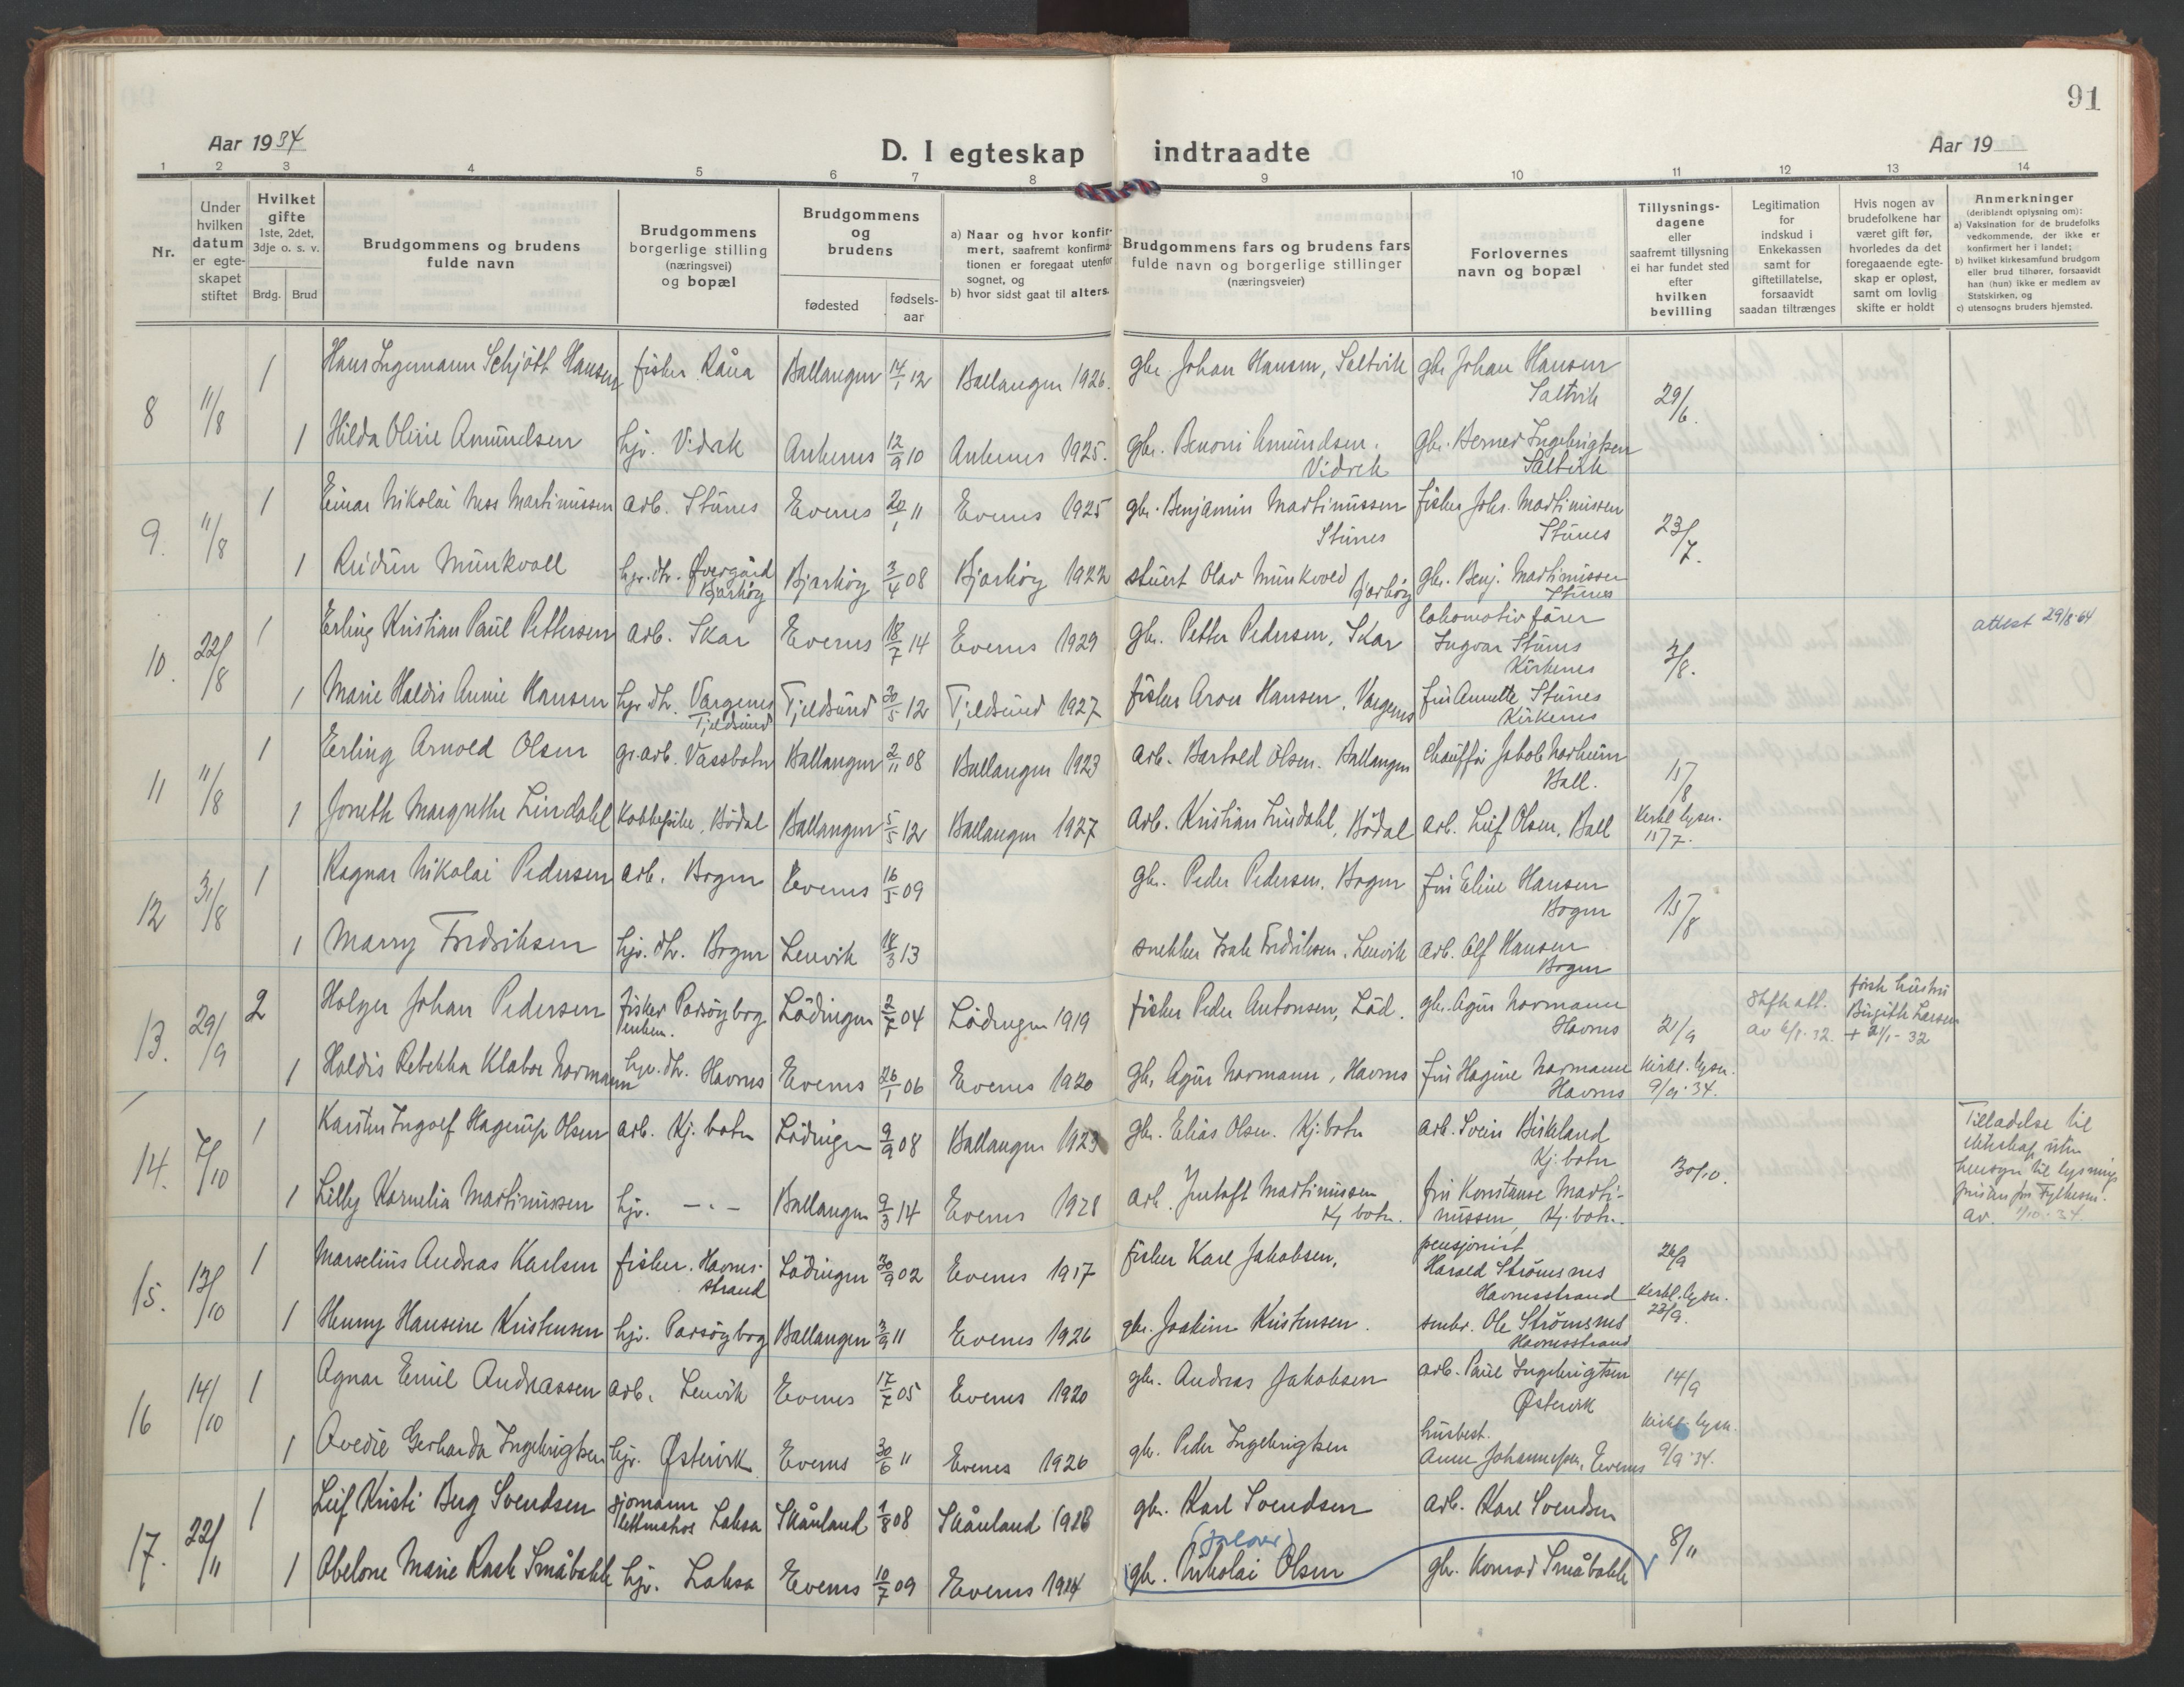 91
Aar 1934
D. I egteskap indtraadte
Aar 19
1 2 3 4 5 6 7 8 9 10 11 12 13 14
Nr.
Under hvilken datum er egteskapet stiftet
Hvilket gifte 1ste, 2det, 3dje o. s. v.
Brdg. Brud
Brudgommens og brudens fulde navn
Brudgommens borgerlige stilling (næringsvei) og bopæl
Brudgommens og brudens
fødested
fødselsaar
a) Naar og hvor konfirmert, saafremt konfirmationen er foregaat utenfor sognet, og
b) hvor sidst gaat til alters.
Brudgommens fars og brudens fars fulde navn og borgerlige stillinger (næringsveier)
Forlovernes navn og bopæl
Tillysningsdagene eller saafremt tillysning ei har fundet sted efter hvilken bevilling
Legitimation for indskud i Enkekassen samt for giftetillatelse, forsaavidt saadan tiltrænges
Hvis nogen av brudefolkene har været gift før, hvorledes da det foregaaende egteskap er opløst, samt om lovlig skifte er holdt
Anmerkninger (deriblandt oplysning om):
a) Vaksination for de brudefolks vedkommende, der ikke er konfirmert her i landet;
b) hvilket kirkesamfund brudgom eller brud tilhører, forsaavidt han (hun) ikke er medlem av Statskirken, og
c) utensogns bruders hjemsted.
8 11/8 1 Hans Ingemann Schjøtt Hansen fisker Råna Ballangen 14/1 12 Ballangen 1926. gbr Johan Hansen, Saltvik gbr Johan Hansen Saltvik 29/6.
1 Hilda Oline Amundsen hjv. Vidrek Ankenes 12/9 10 Ankenes 1925. gbr. Benoni Amundsen. Vidrek gbr. Berner Ingebrigtsen Saltvik
9. 11/8 1 Einar Nikolai Ness Martinussen arb. Stunes Evenes 20/1 11 Evenes 1925 gbr. Benjamin Martinussen Stunes fisker Johs. Martinussen Stunes 23/7.
1 Reidun Munkvoll hjv. dtr. Øvergård Bjarkøy Bjarkøy 3/4 08 Bjarkøy 1922 stuert Olav Munkvold Bjarkøy gbr. Benj. Martinussen Stunes
10. 22/8 1 Erling Kristian Paul Pettersen arb. Skar Evenes 18/7 14 Evenes 1929 gbr. Petter Pedersen, Skar lokomotivfører Ingvar Stunes Kirkenes 3/8. attest 29/8-64
1 Marie Haldis Annie Hansen hjv dtr. Vargenes Tjeldsund Tjeldsund 30/5 12 Tjeldsund 1927 fisker Aron Hansen, Vargenes fru Annette Stunes Kirkenes
11 11/8 1 Erling Arnold Olsen gr.arb. Vassbotn Ballangen 2/11 08 Ballangen 1923 arb. Bartold Olsen. Ballangen Chauffør Jakob Norheim Ball. 15/8
1 Joneth Margrethe Lindahl Kokkepike, Bødal Ballangen 5/5 12 Ballangen 1927 arb. Kristian Lindahl, Bødal arb. Leif Olsen, Ball Kirkl lysn. 15/7.
12 31/8 1 Ragnar Nikolai Pedersen arb. Bogen Evenes 16/5 09 gbr. Peder Pedersen, Bogen fru Eline Hansen Bogen 15/8
1 Marry Fredriksen hjv. dtr. Bogen Lenvik 18/3 13 snekker Isak Fredriksen, Lenvik arb. Alf Hansen Bogen
13. 29/9 2 Holger Johan Pedersen fisker Barøybog enkem. Lødingen 2/7 04 Lødingen 1919 fisker Peder Antonsen, Lød. gbr. Agin Normann Havnes 21/9 Skifteatt. av 6/1-32. første hustru Birgith Larsen + 21/1-32
1 Haldis Rebekka Klaboe Normann hjv. dtr. Havnes Evenes 26/1 06 Evenes 1920 gbr Agin Normann, Havnes fru Hagine Normann Havnes Kirkl. lysn. 9/9-34.
14. 7/10 1 Karsten Ingolf Hagerup Olsen arb. Kj.botn Lødingen 9/9 08 Ballangen 1923 gbr. Elias Olsen. Kj.botn arb. Svein Birkeland Kj.botn 30/10. Tilladelse til ekteskap uten hensyn til lysnings fristen fra Fylkesm. av. 1/10-34.
1 Lilly Kornelia Martinussen hjv. -.- Ballangen 9/3 14 Evenes 1928 arb. Martinussen Kj botn. fru Konstanse Martinussen, Kj.botn.
15. 13/10 1 Marselius Andreas Karlsen fisker. Havnesstrand Lødingen 30/9 02 Evenes 1917 fisker Karl Jakobsen, pensjonist Harald Strømsnes Havnesstrand 26/9
1 Henny Hansine Kristensen hjv. Barøybog Ballangen 3/9 11 Evenes 1926 gbr. Joakim Kristensen. småbr. Ole Strømsnes Havnesstrand Kirkl. lysn. 23/9.
16 14/10 1 Agnar Emil Andreassen arb. Lenvik Evenes 17/7 05 Evenes 1920 gbr. Andreas Jakobsen arb. Paul Ingebrigtsen Østervik 14/9
1 Ovedie Gerharda Ingebrigtsen hjv. Østervik Evenes 30/6 11 Evenes 1926 gbr. Peder Ingebrigtsen husbest. Anne Johannessen, Evenes Kirkl. lysn. 9/9-34.
17. 22/11 1 Leif Kristi Berg Svendsen sjømann Laksa Skånland 1/8 08 Skånland 1923 gbr. Karl Svendsen arb. Karl Svendsen 8/11
1 Abelone Marie Rask Småbakk hjv. Laksa Evenes 10/7 09 Evenes 1924 gbr. Nikolai Olsen gbr. Konrad Småbakk